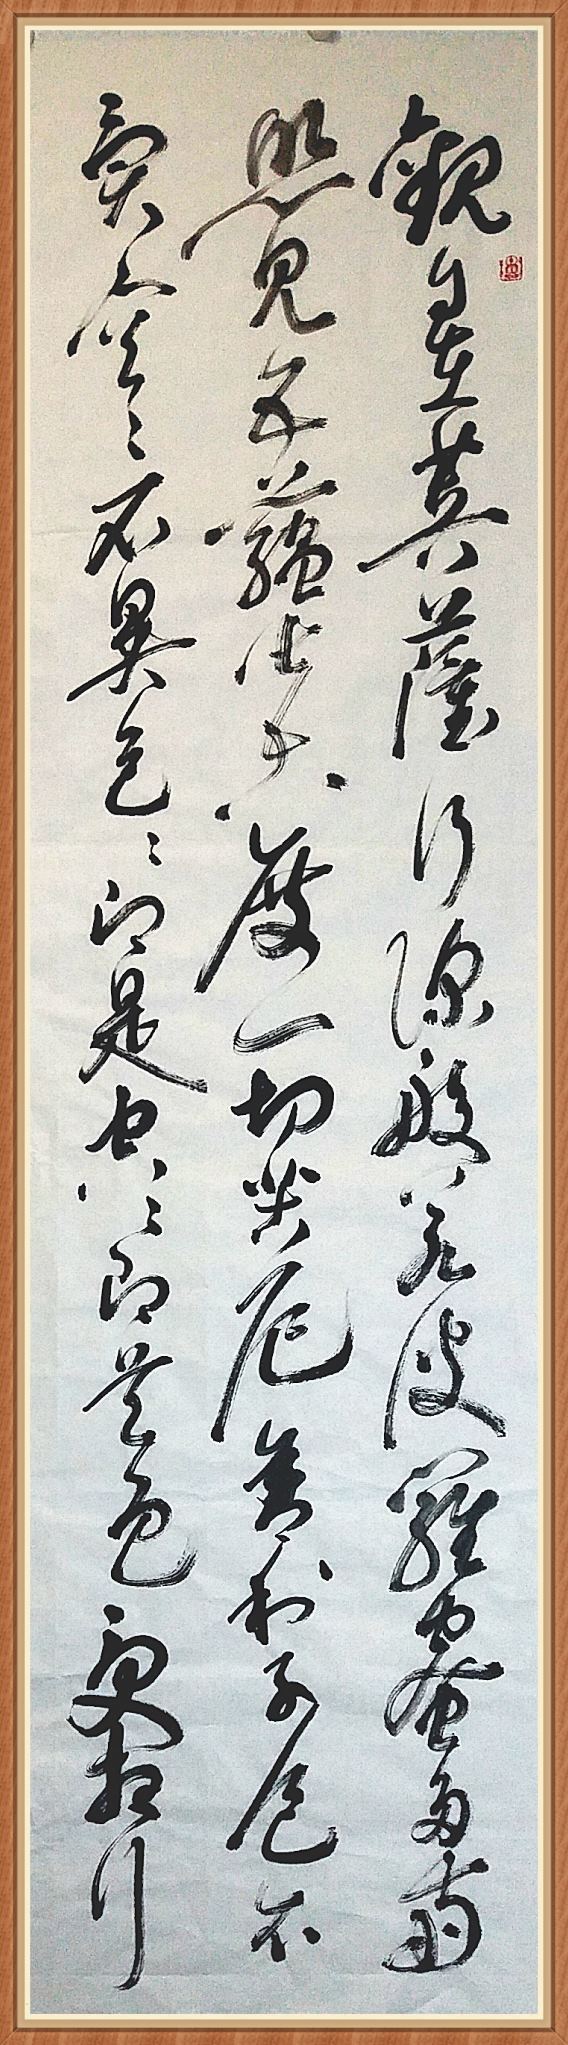 觀自在菩薩行深般若波羅蜜多時
照見五蘊皆空度一切苦厄舍利子色不
異空々不異色々即是空々即是色受想行